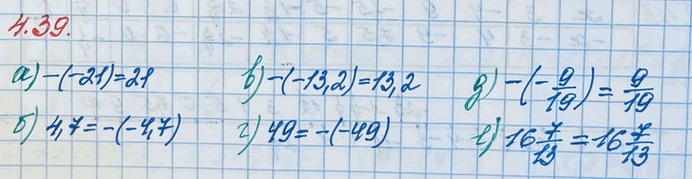 4.39.
а) -(-21)=21 в) -(-13,2)=13,2 д) -(-9/19)=9/19
б) 4,7=-(-4,7) г) 49=-(-49) е) 16 7/13=16 7/13